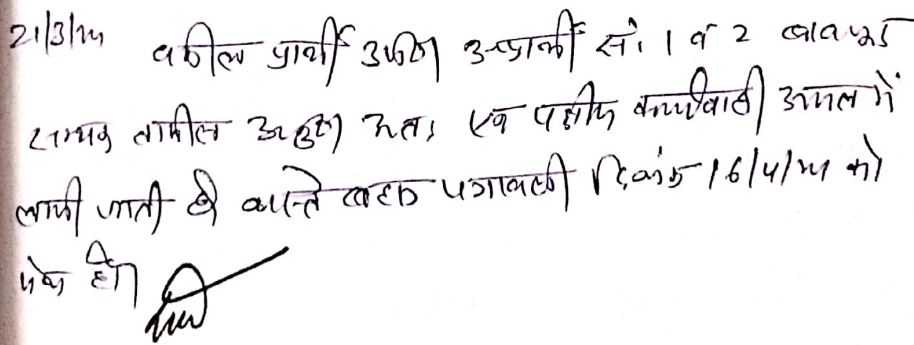 21/3/24 वकील प्रार्थी उप० अप्रार्थी सं. 1 व 2 बावजूद
सम्यक तामील अनु० अतः एक पक्षीय कार्यवाही अमल में
लायी जाती है वास्ते बहस पत्रावली दिनांक 16/4/24 को
पेश हो।